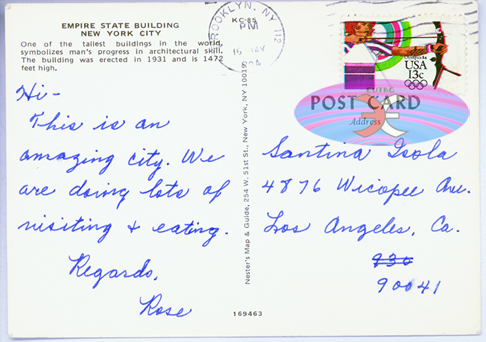 EMPIRE STATE BUILDING
NEW YORK CITY
One of the tallest buildings in the world,
symbolizes man's progress in architectural skill.
The building was erected in 1931 and is 1472
feet high,
Hi-
This is an
amazing city. We
are doing lots of
visiting & eating.
Regards,
Rose
KC-85
Nester's Map & Guide, 254 W. 51st St., New York, NY 10019
169463
BROOKLYN, NY 112
PM
15
USA
13c
POST CARD
Address
Santina Isola
4876 Wicopee Ave.
Los Angeles, Ca.
936
90041